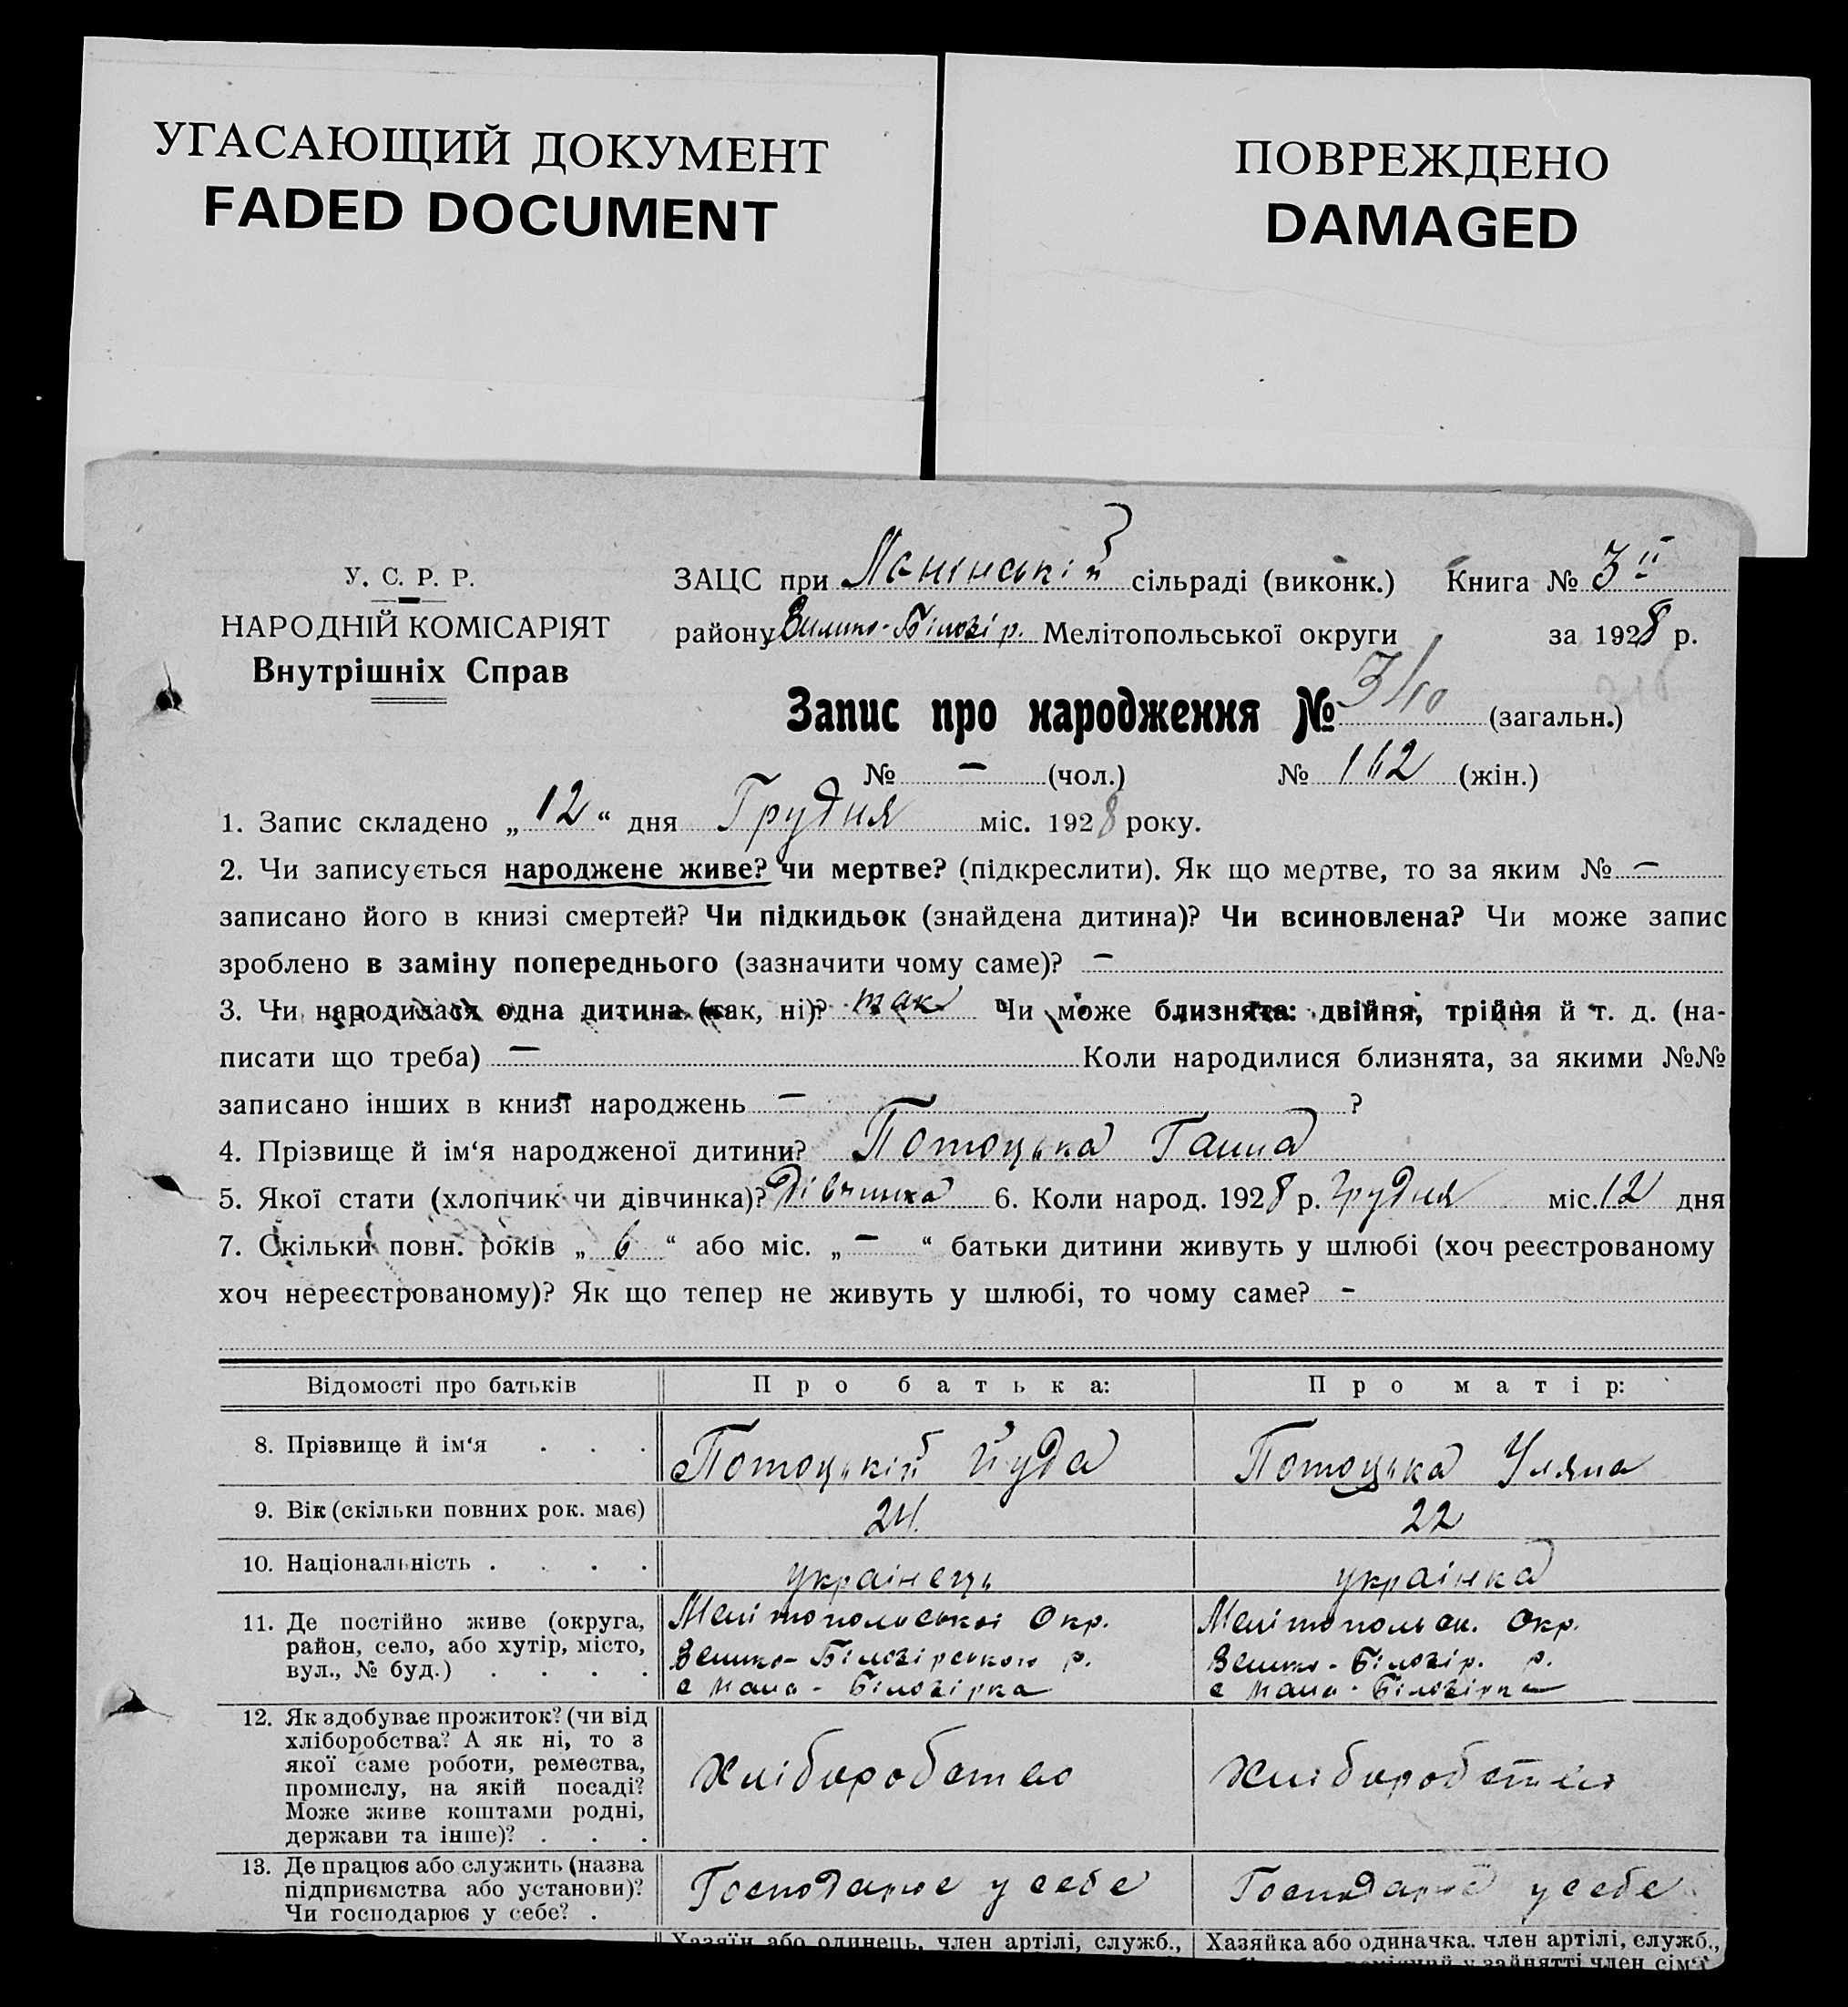 УГАСАЮЩИЙ ДОКУМЕНТ
FADED DOCUMENT
ПОВРЕЖДЕНО
DAMAGED
У. С. Р. Р.
НАРОДНІЙ КОМІСАРІЯТ
Внутрішніх Справ
ЗАЦС при сільраді (виконк.) Книга № 3
району Велико-Білозір. Мелітопольської округи за 1928 р.
Запис про народження № (загальн.)
№ — (чол.) № 162 (жін.)
1. Запис складено „ 12 “ дня Грудня міс. 1928 року.
2. Чи записується народжене живе? чи мертве? (підкреслити). Як що мертве, то за яким № —
записано його в книзі смертей? Чи підкидьок (знайдена дитина)? Чи всиновлена? Чи може запис
зроблено в заміну попереднього (зазначити чому саме)? —
3. Чи народилася одна дитина (так, ні)? так Чи може близнята: двійня, трійня й т. д. (на-
писати що треба) — Коли народилися близнята, за якими №№
записано інших в книзі народжень — ?
4. Прізвище й ім‘я народженої дитини? Потоцька Ганна
5. Якої стати (хлопчик чи дівчинка)? Дівчинка 6. Коли народ. 1928 р. Грудня міс. 12 дня
7. Скільки повн. років „ 6 “ або міс. „ — “ батьки дитини живуть у шлюбі (хоч реєстрованому
хоч нереєстрованому)? Як що тепер не живуть у шлюбі, то чому саме? -
Відомості про батьків Про батька: Про матір:
8. Прізвище й ім‘я . . . Потоцькій Йуда Потоцька Уляна
9. Вік (скільки повних рок. має) 24 22
10. Національність . . . . українець українка
11. Де постійно живе (округа,
район, село, або хутір, місто,
вул., № буд.) . . . .
Мелітопольської Окр.
Велико-Білозірського р.
с Мала-Білозірка
Мелітопольск. Окр.
Велико-Білозір. р.
с Мала-Білозірка
12. Як здобуває прожиток? (чи від
хліборобства? А як ні, то з
якої саме роботи, ремества,
промислу, на якій посаді?
Може живе коштами родні,
держави та інше)? . . .
Хліборобство
Хліборобство
13. Де працює або служить (назва
підприємства або установи)?
Чи господарює у себе? .
Господарює у себе
Господарює у себе
Хазяїн або одинець, член артілі, служб.,
Хазяйка або одиначка. член артілі, служб.,
у зайнятті член сім‘ї